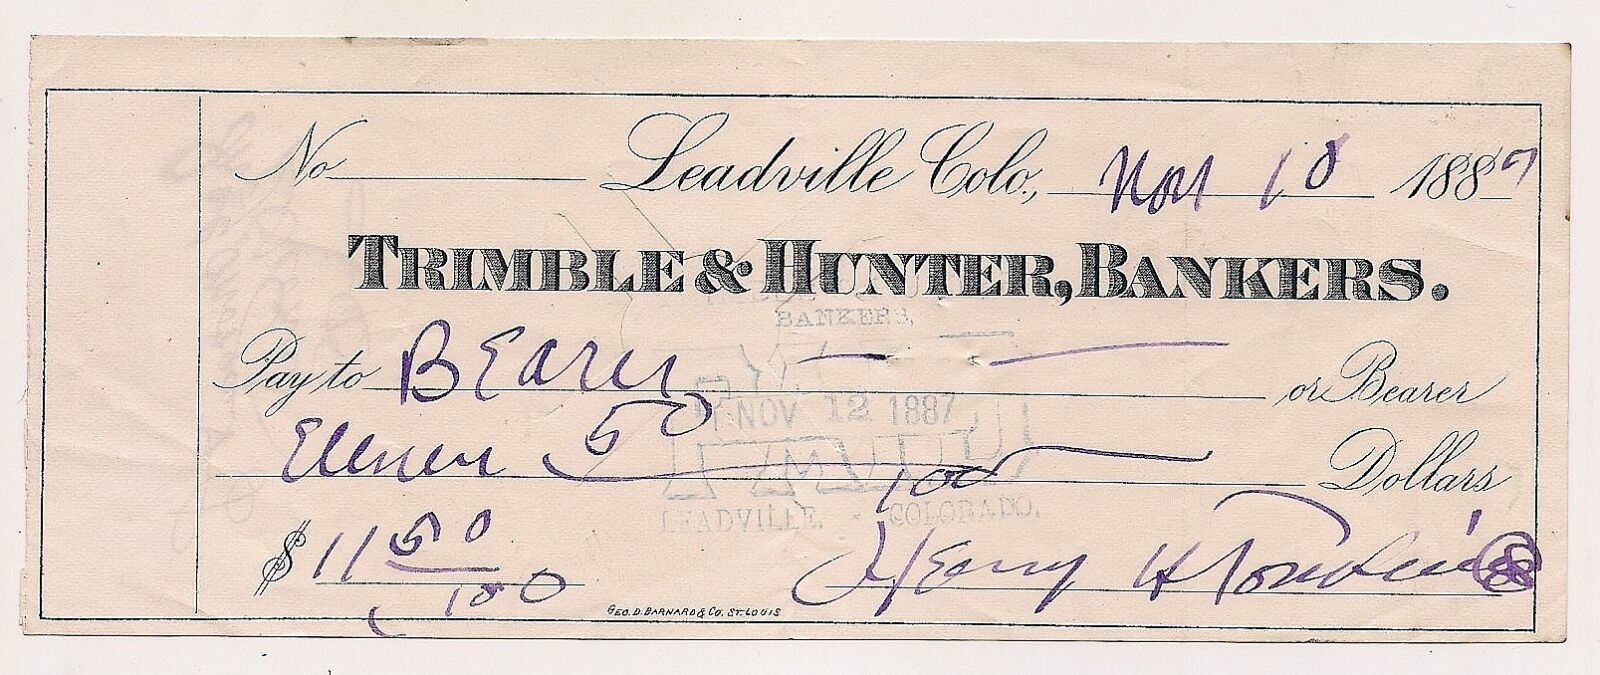 No Leadville Colo., Nov 10 1887
TRIMBLE & HUNTER, BANKERS.
BANKERS,
Pay to Bearer or Bearer
NOV 12 1887
Eleven 50/100 Dollars
PAID
LEADVILLE, - COLORADO.
$ 11 50/100 Henry H
GEO. D. BARNARD & CO. ST. LOUIS